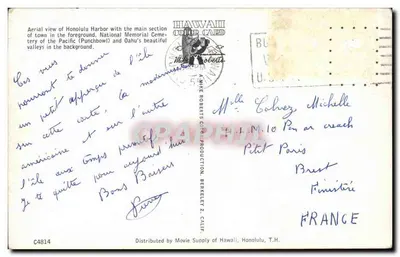 Aerial view of Honolulu Harbor with the main section
of town in the foreground. National Memorial Ceme-
tery of the Pacific (Punchbowl) and Oahu's beautiful
valleys in the background.
HAWAII
COLOR CARD
Mike Roberts
Ces vues
pourront te donner
un petit apperçu de l'île
sur cette carte, la modernisation
américaine et sur l'autre
l'île aux temps primitifs
Je te quitte pour aujourd'hui
Bons Baisers
Pierre
Melle Calvez Michelle
H.L.M. 10 Pen ar creach
Petit Paris
Brest
Finistère
FRANCE
A MIKE ROBERTS COLOR PRODUCTION, BERKELEY 2, CALIF.
C4814
Distributed by Movie Supply of Hawaii, Honolulu, T.H.